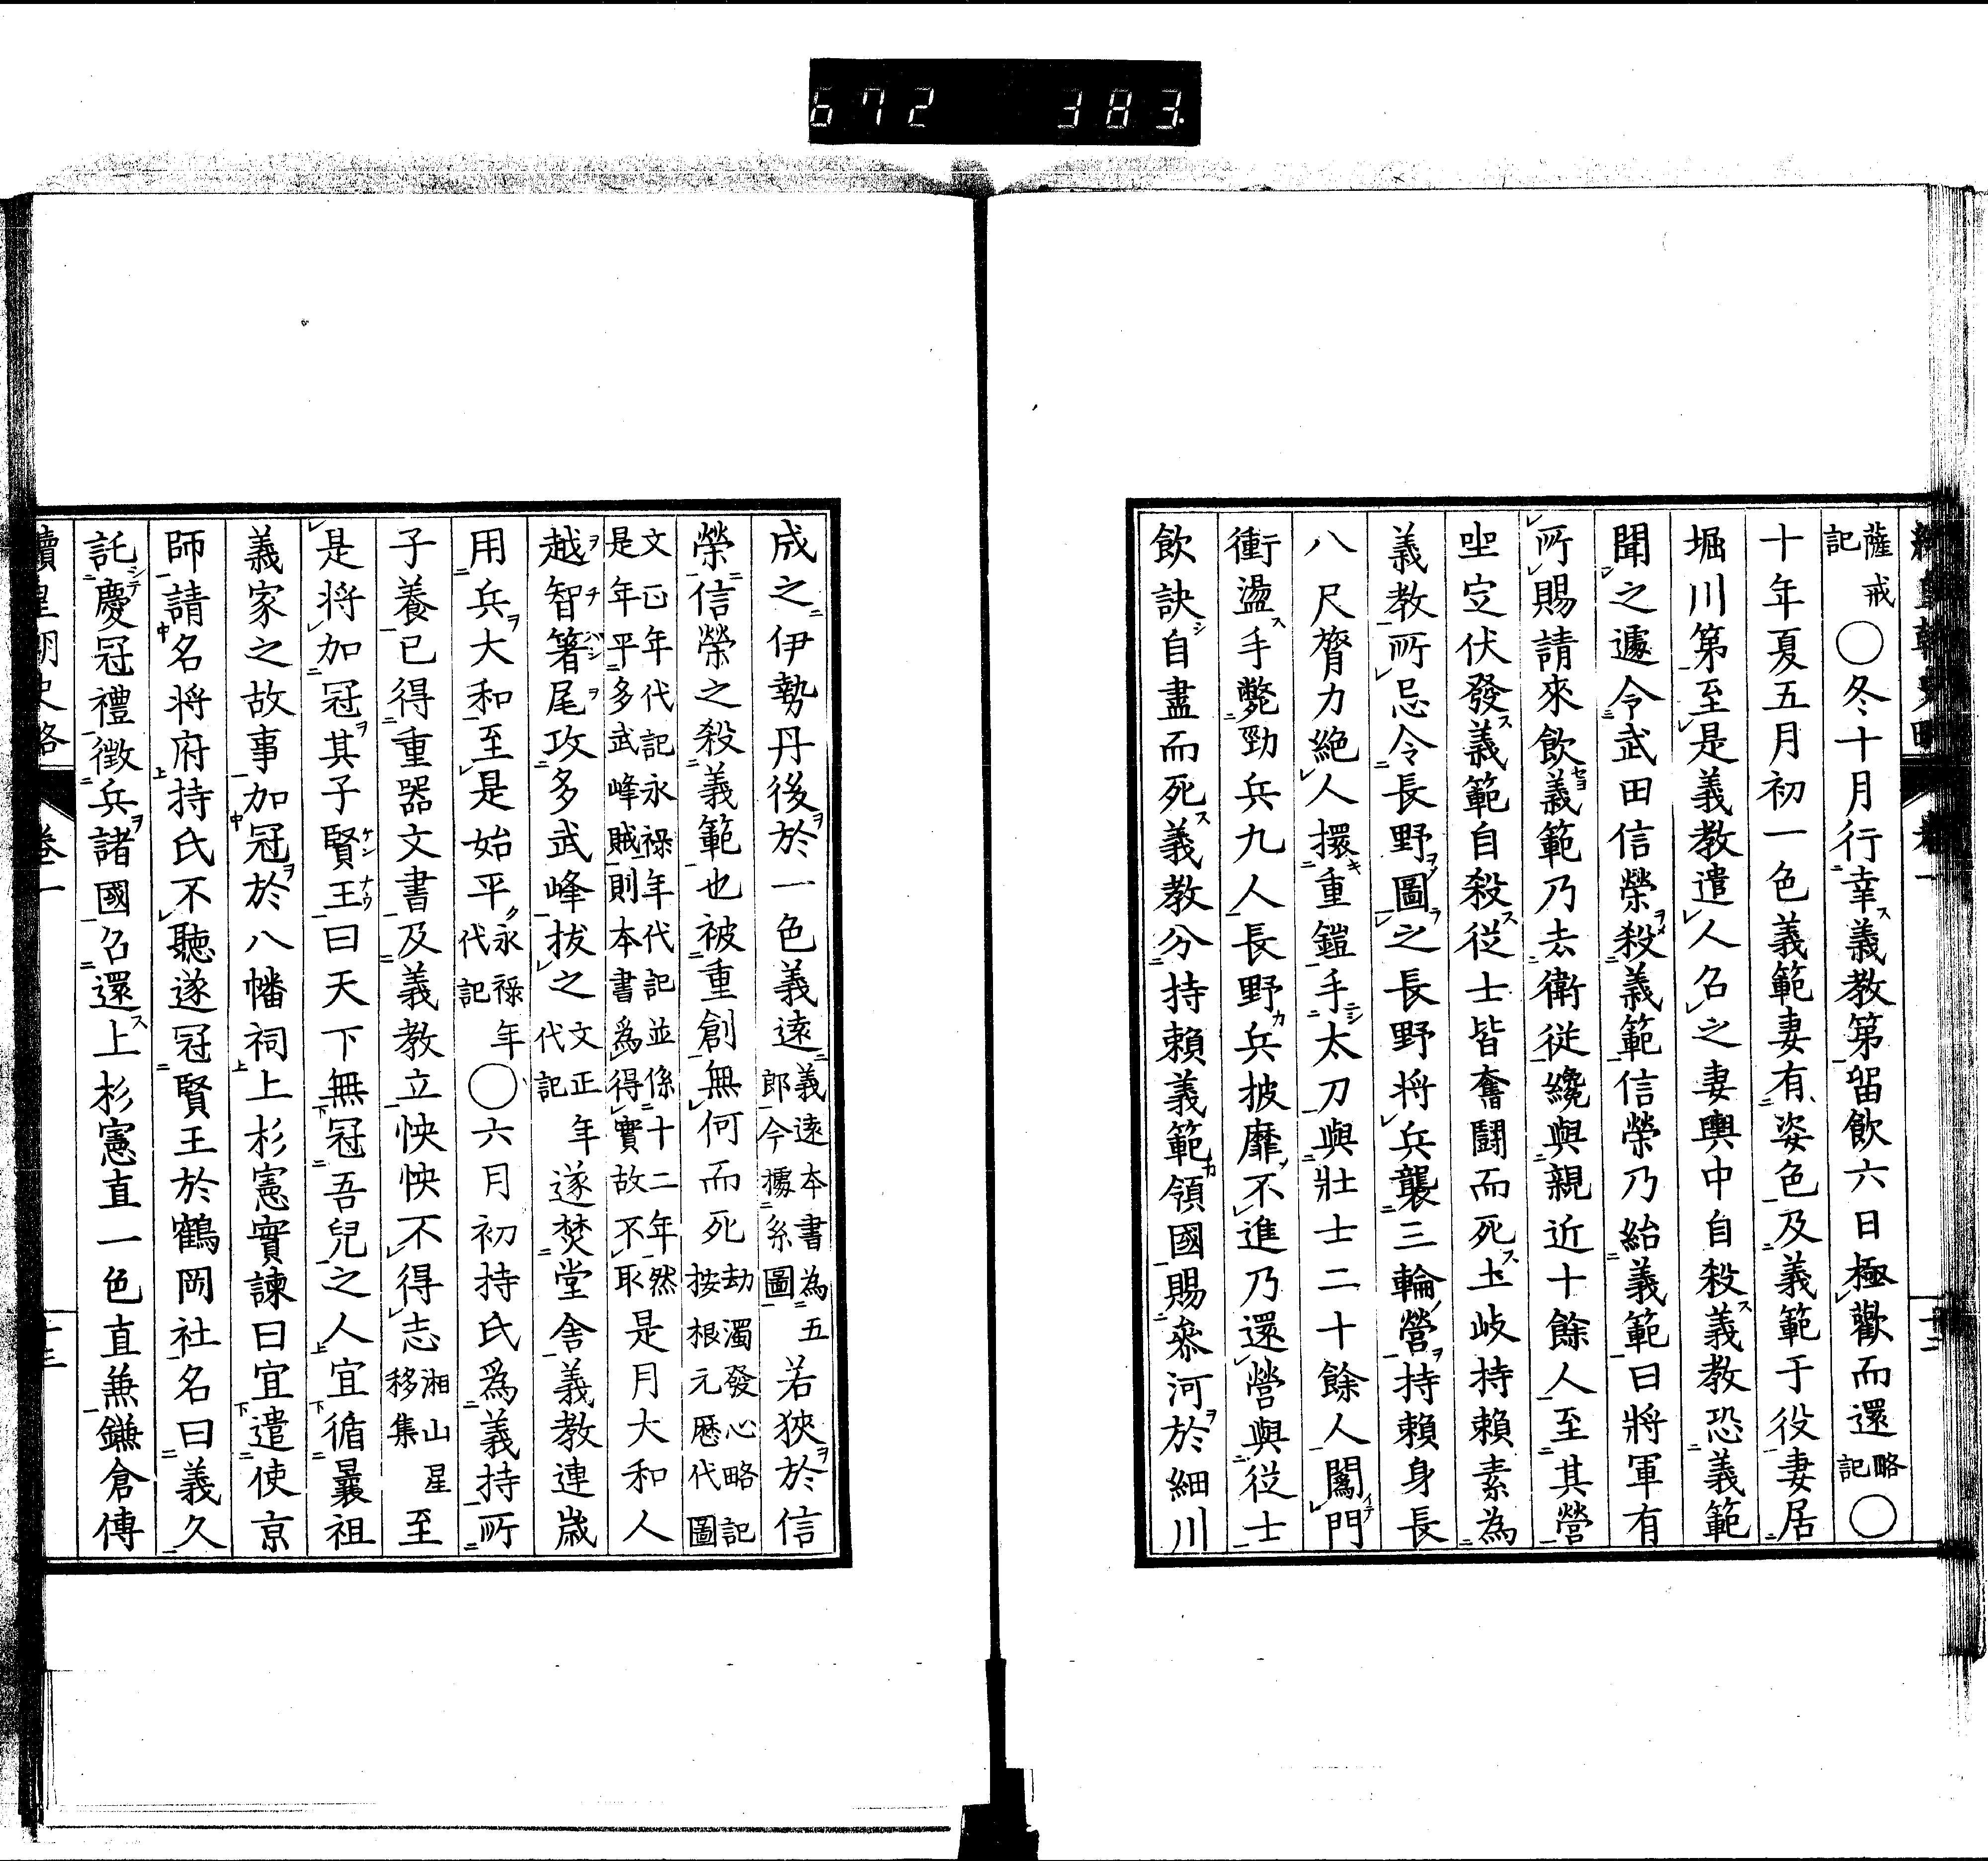 672 383
薩戒記○冬十月行幸義教第留飲六日極歡而還略記○
十年夏五月初一色義範妻有姿色及義範于役妻居
堀川第至是義教遣人召之妻輿中自殺義教恐義範
聞之遽令武田信榮殺義範信榮乃紿義範曰將軍有
所賜請來飲義範乃去衛從纔與親近十餘人至其營
坐定伏發義範自殺從士皆奮鬪而死土岐持賴素為
義教所忌令長野圖之長野将兵襲三輪營持賴身長
八尺膂力絶人擐重鎧手太刀與壯士二十餘人闖門
衝盪手斃勁兵九人長野兵披靡不進乃還營與從士
飲訣自盡而死義教分持賴義範領國賜參河於細川
成之伊勢丹後於一色義遠義遠本書為五郎今據系圖若狹於信
榮信榮之殺義範也被重創無何而死劫濁發心略記按根元歷代圖
文正年代記永祿年代記並係十二年然是年平多武峰賊則本書爲得實故不取是月大和人
越智箸尾攻多武峰拔之文正年代記遂焚堂舍義教連歲
用兵大和至是始平永祿年代記○六月初持氏爲義持所
子養已得重器文書及義教立怏怏不得志湘山星移集至
是将加冠其子賢王曰天下無冠吾兒之人宜循曩祖
義家之故事加冠於八幡祠上杉憲實諫曰宜遣使京
師請名将府持氏不聽遂冠賢王於鶴岡社名曰義久
託慶冠禮徵兵諸國召還上杉憲直一色直兼鎌倉傳
續皇朝史略 卷一 十三